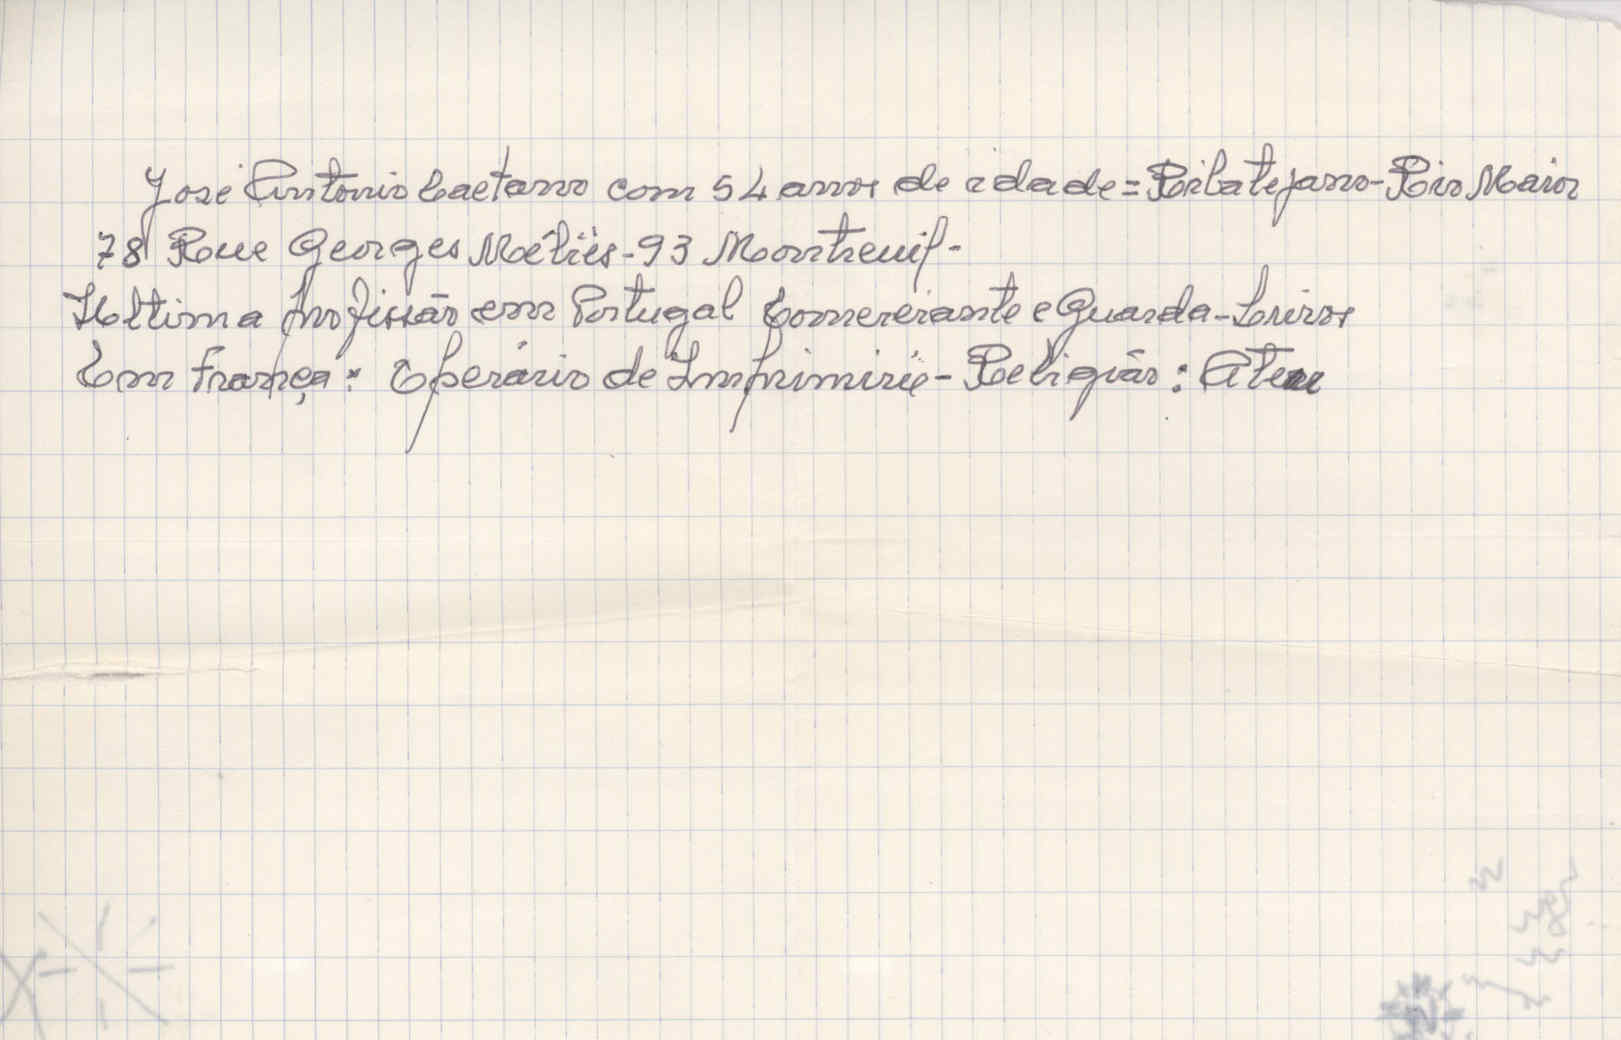 José Antonio Caetano com 54 anos de idade = Ribatejano - Rio Maior
78 Rue Georges Méliès - 93 Montreuil -
Ultima Profissão em Portugal Comerciante e Guarda-Livros
Em França: Operário de Imprimirie - Religião: Ateu